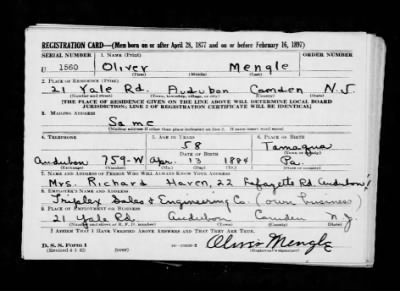 REGISTRATION CARD—(Men born on or after April 28, 1877 and on or before February 16, 1897)
SERIAL NUMBER 1. NAME (Print) ORDER NUMBER
U 1560 Oliver Mengle
(First) (Middle) (Last)
2. PLACE OF RESIDENCE (Print)
21 Yale Rd. Audubon Camden N.J.
(Number and street) (Town, township, village, or city) (County) (State)
[THE PLACE OF RESIDENCE GIVEN ON THE LINE ABOVE WILL DETERMINE LOCAL BOARD
JURISDICTION; LINE 2 OF REGISTRATION CERTIFICATE WILL BE IDENTICAL]
3. MAILING ADDRESS
Same
4. TELEPHONE 5. AGE IN YEARS 6. PLACE OF BIRTH
58 Tamaqua
DATE OF BIRTH (Town or county)
Audubon 759-W Apr. 13 1884 Pa.
(Exchange) (Number) (Mo.) (Day) (Yr.) (State or country)
7. NAME AND ADDRESS OF PERSON WHO WILL ALWAYS KNOW YOUR ADDRESS
Mrs. Richard Haven, 22 Lafayette Rd. Audubon
8. EMPLOYER'S NAME AND ADDRESS
Triplex Sales & Engineering Co. (own business)
9. PLACE OF EMPLOYMENT OR BUSINESS
21 Yale Rd. Audubon Camden N.J.
(Number and street or R. F. D. number) (Town) (County) (State)
I AFFIRM THAT I HAVE VERIFIED ABOVE ANSWERS AND THAT THEY ARE TRUE.
D. S. S. Form 1
(Revised 4-1-42) (over) Oliver Mengle